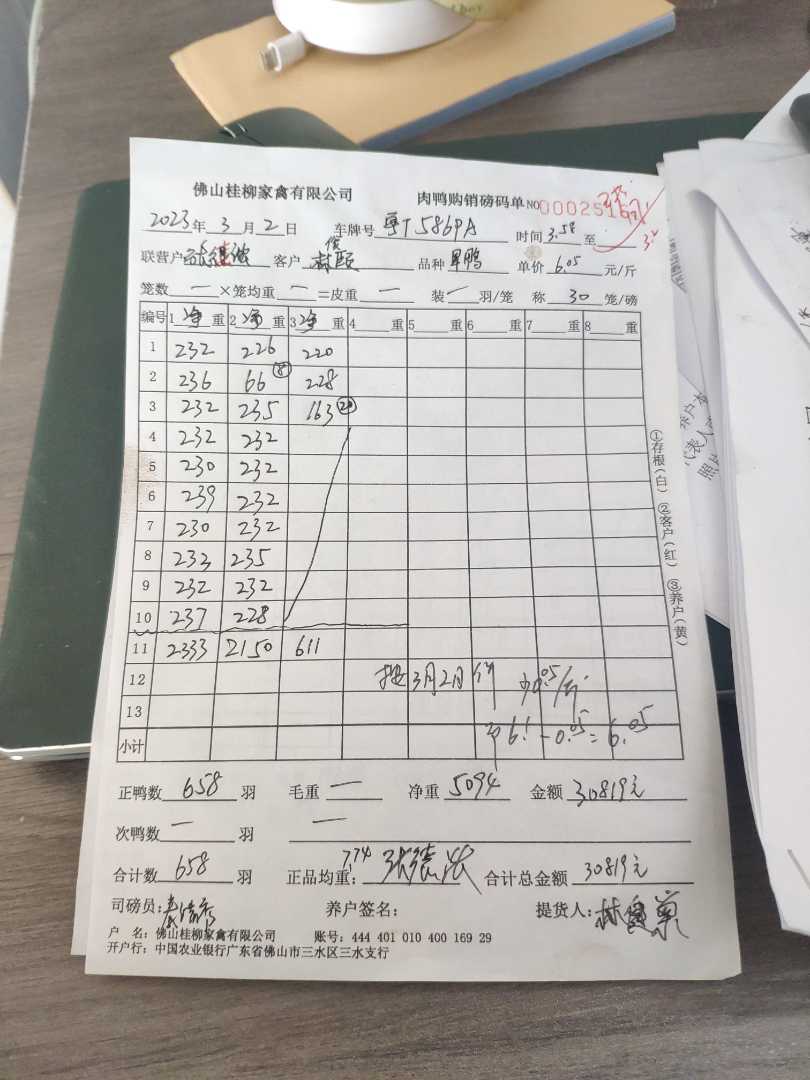 佛山桂柳家禽有限公司 肉鸭购销磅码单 NO
2023年 3月 2日 车牌号 粤T5869A 时间 3.58 至
联营户 客户 品种 单价 6.05 元/斤
笼数 一 ×笼均重 一 =皮重 一 装 一 羽/笼 称 30 笼/磅
编号 1 净 重 2 净 重 3 净 重 4 重 5 重 6 重 7 重 8 重
1 232 226 220
2 236 66 ⑧ 228
3 232 235 163 ⑳
4 232 232
5 230 232
6 239 232
7 230 232
8 233 235
9 232 232
10 237 228
11 2333 2150 611
12 按3月2日价 少0.05/斤
13 即6.1-0.05=6.05
小计
正鸭数 658 羽 毛重 一 净重 5094 金额 30819元
次鸭数 一 羽 一
合计数 658 羽 正品均重: 7.74 合计总金额 30819元
司磅员: 养户签名: 提货人:
户 名: 佛山桂柳家禽有限公司 账号: 444 401 010 400 169 29
开户行: 中国农业银行广东省佛山市三水区三水支行
①存根(白) ②客户(红) ③养户(黄)